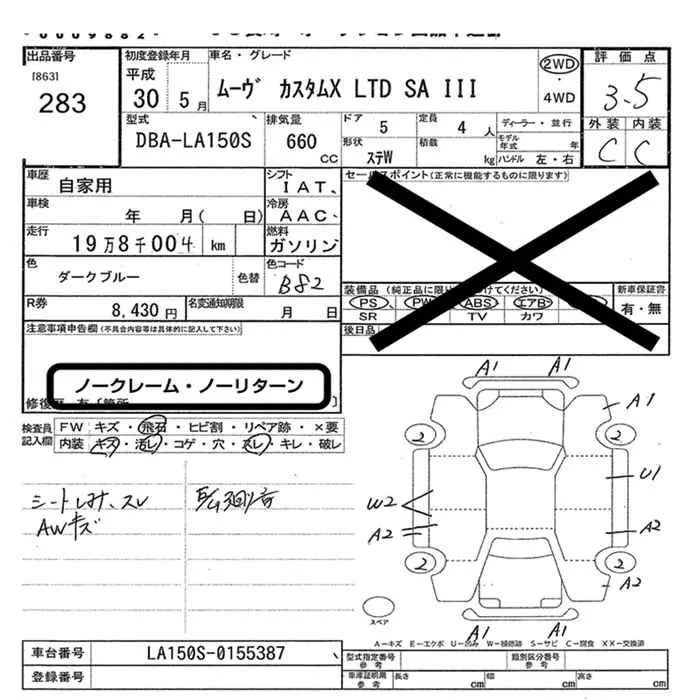 出品番号
[863]
283
初度登録年月
平成
30 5月
車名・グレード
ムーヴ カスタムX LTD SA III
2WD
・
4WD
評価点
3.5
外装 内装
C C
型式
DBA-LA150S
排気量
660
CC
ドア 5
定員 4 人
ディーラー・並行
形状
ステW
積載
kg
モデル年式 年
ハンドル 左・右
車歴
自家用
シフト
IAT、
車検
年 月( 日)
冷房
AAC、
走行
19万8千004 km
燃料
ガソリン
色
ダークブルー
色替
色コード
B82
R券
8,430円
名変通知期限
月 日
セールスポイント(正常に機能するものに限ります)
PS PW ABS エアB
SR TV カワ
後日品
新車保証書
有・無
注意事項申告欄(不具合内容等は具体的に記入して下さい)
ノークレーム・ノーリターン
検査員記入欄
FW キズ・飛石・ヒビ割・リペア跡・×要
内装 キズ・汚レ・コゲ・穴・スレ・キレ・破レ
シートしみ、スレ
AWキズ
A1 A1
A1
2 2
U1
W2
A2 A2
2 2
A2
A1 A1
スペア
A-キズ E-エクボ U-凹み W-補修跡 S-サビ C-腐食 XX-交換済
車台番号
LA150S-0155387
登録番号
型式指定番号 参考
類別区分番号 参考
車庫証明用 参考
長さ cm
幅 cm
高さ cm